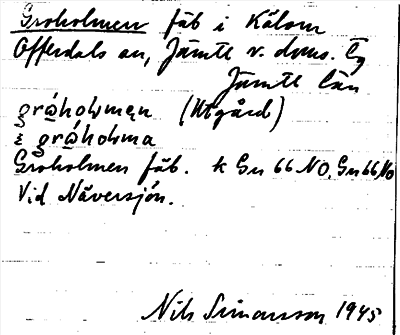 Groholmen fäb i Kålom
Offerdals sn, Jämtl. v. dms. tg
Jämtl län
gròhoɫmęn (Utgård)
i gròhoɫma
Groholmen fäb. k Gn 66 NO, Gn 66, No
Vid Näversjön.
Nils Simonsson 1945